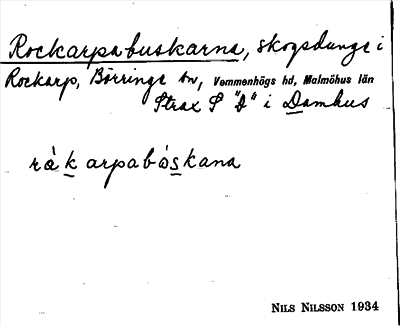 Rockarpabuskarna, skogsdunge i
Rockarp, Börringe sn, Vemmenhögs hd, Malmöhus län
Strax S "D" i Damhus
ràk arpabòskana
NILS NILSSON 1934